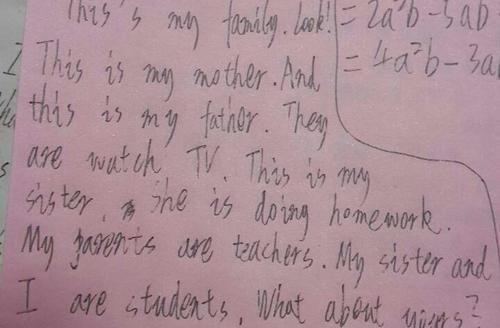 This's my family. Look!
This is my mother. And
this is my father. They
are watch TV. This is my
sister. She is doing homework.
My parents are teachers. My sister and
I are students. What about yours?
= 2a²b - 3ab
= 4a²b - 3a